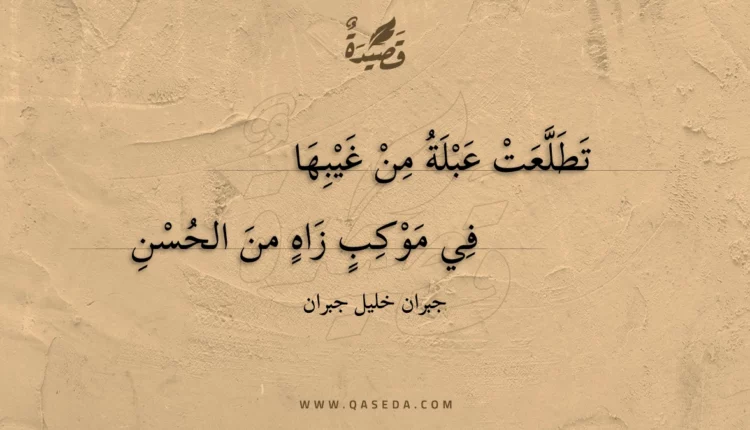 قَصِيدَةٌ
تَطَلَّعَتْ عَبْلَةُ مِنْ غَيْبِهَا
فِي مَوْكِبٍ زَاهٍ منَ الحُسْنِ
جبران خليل جبران
WWW.QASEDA.COM